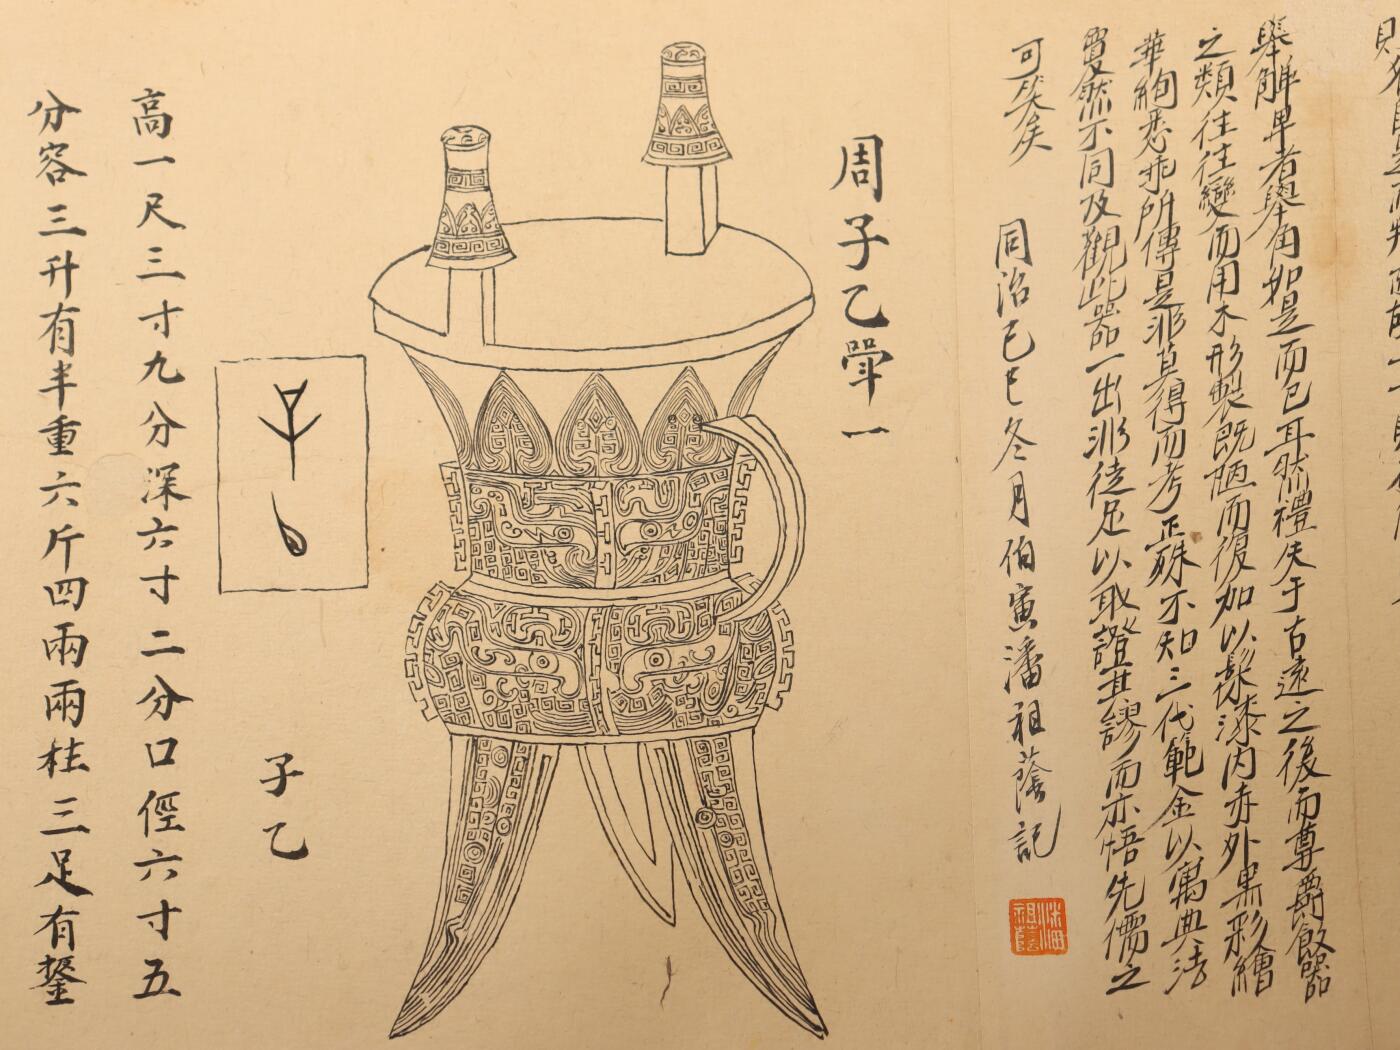 舉觶卑者舉角如是而已耳然禮失于古遠之後而尊爵飲器
之類往往變而用木形製既陋而復加以髹漆內赤外黑彩繪
華絢悉乖所傳是非莫得而考正殊不知三代範金以寓典法
敻然不同及觀此器一出非徒足以取證其謬而亦悟先儒之
可笑矣
同治己巳冬月伯寅潘祖蔭記
潘祖蔭
周子乙斝一
子乙
高一尺三寸九分深六寸二分口徑六寸五
分容三升有半重六斤四兩兩柱三足有鋬